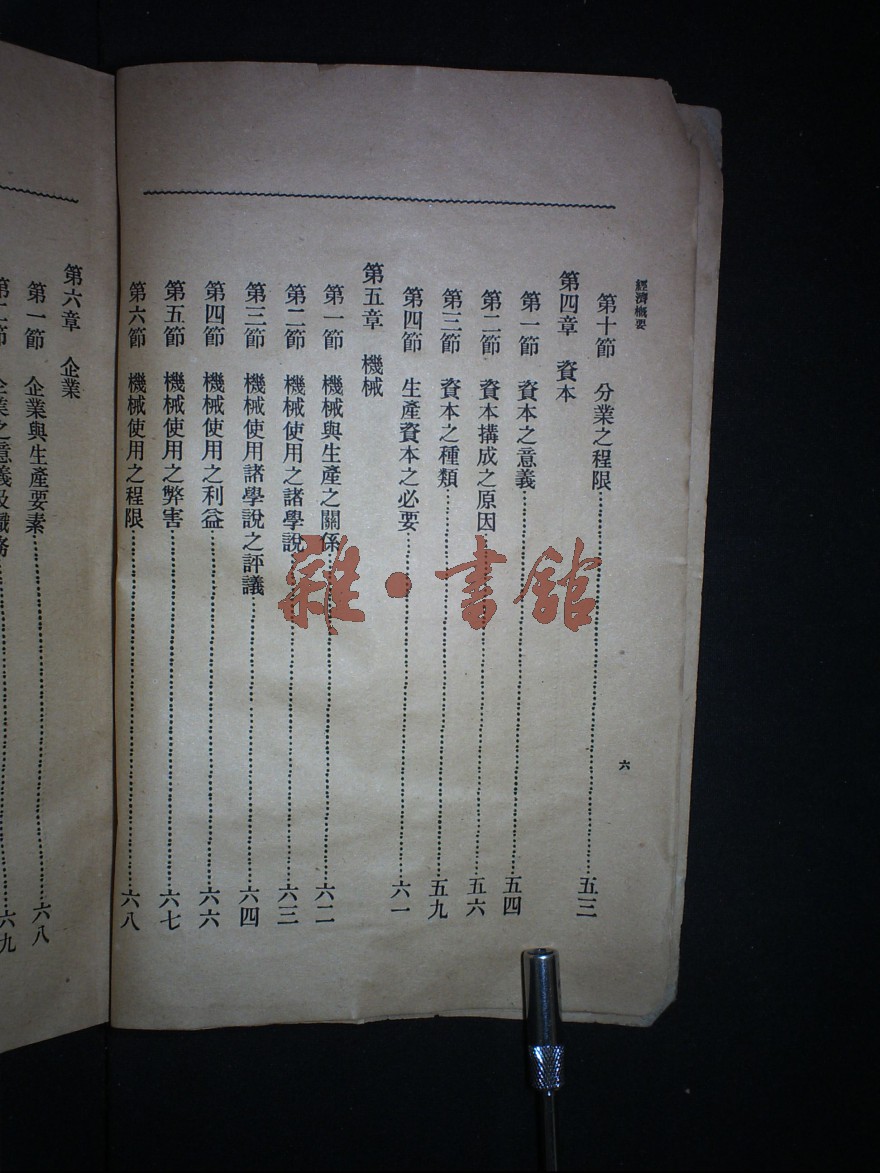 經濟概要
六
第十節 分業之程限……五三
第四章 資本
第一節 資本之意義……五四
第二節 資本搆成之原因……五六
第三節 資本之種類……五九
第四節 生產資本之必要……六一
第五章 機械
第一節 機械與生產之關係……六二
第二節 機械使用之諸學說……六三
第三節 機械使用諸學說之評議……六四
第四節 機械使用之利益……六六
第五節 機械使用之弊害……六七
第六節 機械使用之程限……六八
第六章 企業
第一節 企業與生產要素……六八
第二節 企業之意義及職務……六九
雜·書館